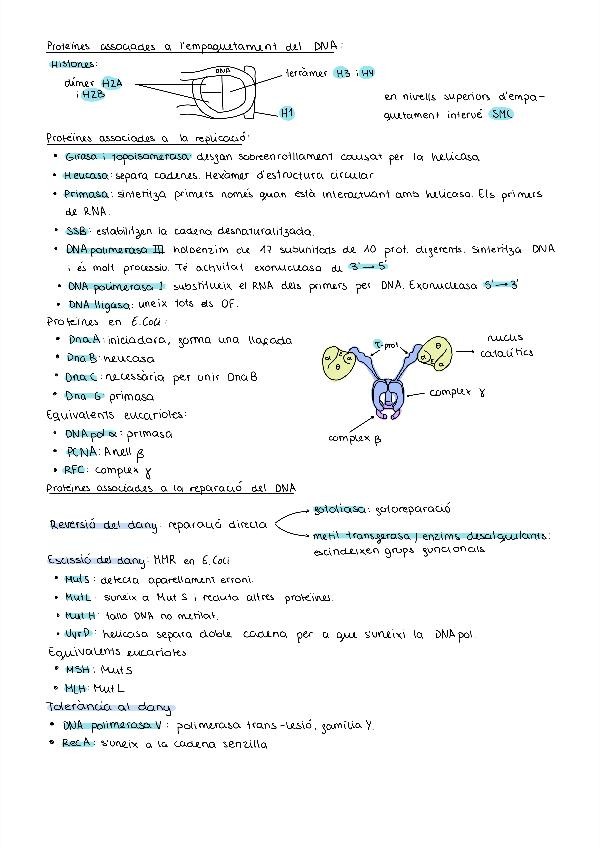 Proteïnes associades a l'empaquetament del DNA:
Histones:
dímer H2A
i H2B
DNA
tetràmer H3 i H4
H1
en nivells superiors d'empa-
quetament intervé SMC
Proteïnes associades a la replicació:
• Girasa i topoisomerasa desfan sobreenrotllament causat per la helicasa
• Helicasa: separa cadenes. Hexàmer d'estructura circular
• Primasa: sintetitza primers només quan està interactuant amb helicasa. Els primers
de RNA.
• SSB: estabilitzen la cadena desnaturalitzada.
• DNA polimerasa III holoenzim de 17 subunitats de 10 prot. diferents. Sintetitza DNA
i és molt processiu. Té activitat exonucleasa de 3'→5'
• DNA polimerasa I substitueix el RNA dels primers per DNA. Exonucleasa 5'→3'
• DNA lligasa: uneix tots els OF.
Proteïnes en E.Coli:
• DnaA: iniciadora, forma una llaçada
• DnaB: helicasa
• DnaC: necessària per unir DnaB
• Dna G primasa
Equivalents eucariotes:
• DNA pol α: primasa
• PCNA: Anell β
• RFC: complex γ
τ-prot
α ε θ
θ ε α
nuclis
catalítics
complex γ
complex β
Proteïnes associades a la reparació del DNA
Reversió del dany: reparació directa
fotoliasa: fotoreparació
metil transferasa / enzims desalquilants:
escindeixen grups funcionals
Escissió del dany: MMR en E.Coli
• MutS: detecta aparellament erroni.
• MutL: s'uneix a Mut S i recluta altres proteïnes.
• Mut H: talla DNA no metilat.
• UvrD: helicasa separa doble cadena per a que s'uneixi la DNA pol.
Equivalents eucariotes
• MSH: MutS
• MLH: Mut L
Tolerància al dany
• DNA polimerasa V: polimerasa trans-lesió, família Y.
• RecA: s'uneix a la cadena senzilla